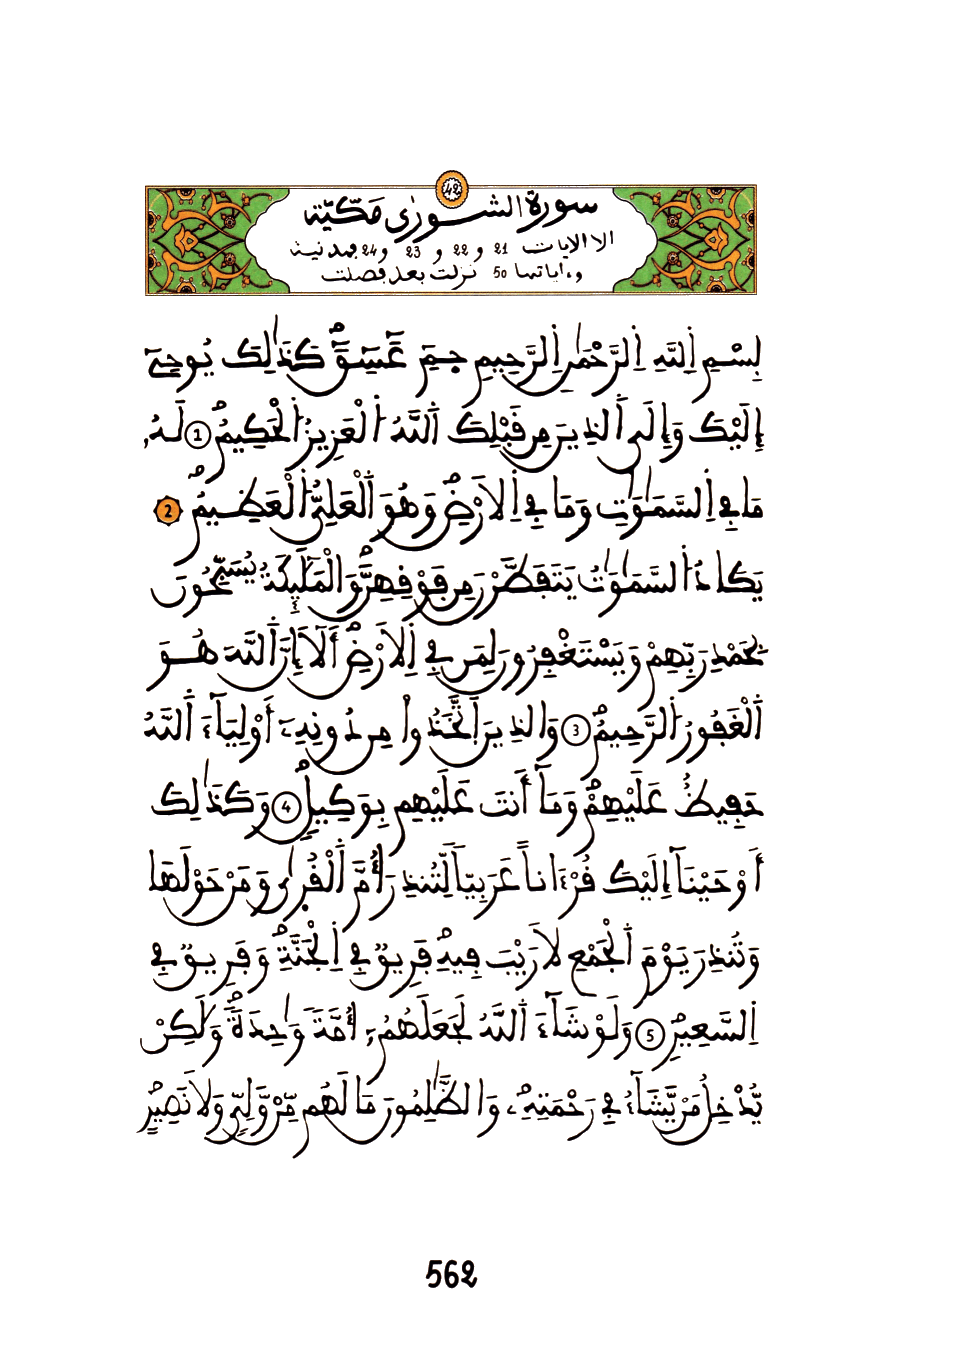 42
سورة الشورى مكّيّة
الا الايات 21 و 22 و 23 و 24 فمدنية
وءاياتها 50 نزلت بعد فصلت
بِسْمِ اِ۬للَّهِ اِ۬لرَّحْمَٰنِ اِ۬لرَّحِيمِ حٓمِٓ عٓسٓقَٓۖ كَذَٰلِكَ يُوحَىٰٓ
إِلَيْكَ وَإِلَى اَ۬لذِينَ مِن قَبْلِكَ اَ۬للَّهُ اُ۬لْعَزِيزُ اُ۬لْحَكِيمُۖ 1 لَهُۥ
مَا فِے اِ۬لسَّمَٰوَٰتِ وَمَا فِے اِ۬لَارْضِۖ وَهُوَ اَ۬لْعَلِيُّ اُ۬لْعَظِيمُۖ 2
يَكَادُ اُ۬لسَّمَٰوَٰتُ يَتَفَطَّرْنَ مِن فَوْقِهِنَّۖ وَالْمَلَٰٓئِكَةُ يُسَبِّحُونَ
بِحَمْدِ رَبِّهِمْ وَيَسْتَغْفِرُونَ لِمَن فِے اِ۬لَارْضِۖ أَلَآ إِنَّ اَ۬للَّهَ هُوَ
اَ۬لْغَفُورُ اُ۬لرَّحِيمُۖ 3 وَالذِينَ اَ۪تَّخَذُواْ مِن دُونِهِۦٓ أَوْلِيَآءَ اَ۬للَّهُ
حَفِيظٌ عَلَيْهِمْۖ وَمَآ أَنتَ عَلَيْهِم بِوَكِيلٖۖ 4 وَكَذَٰلِكَ
أَوْحَيْنَآ إِلَيْكَ قُرْءَاناً عَرَبِيّاٗ لِّتُنذِرَ أُمَّ اَ۬لْقُر۪ىٰ وَمَنْ حَوْلَهَا
وَتُنذِرَ يَوْمَ اَ۬لْجَمْعِ لَا رَيْبَ فِيهِۖ فَرِيقٞ فِے اِ۬لْجَنَّةِۖ وَفَرِيقٞ فِے
اِ۬لسَّعِيرِۖ 5 وَلَوْ شَآءَ اَ۬للَّهُ لَجَعَلَهُمُۥٓ أُمَّةٗ وَٰحِدَةٗۖ وَلَٰكِنْ
يُّدْخِلُ مَنْ يَّشَآءُ فِے رَحْمَتِهِۦۖ وَالظَّٰلِمُونَ مَا لَهُم مِّنْ وَّلِيّٖ وَلَا نَصِيرٍۖ
562